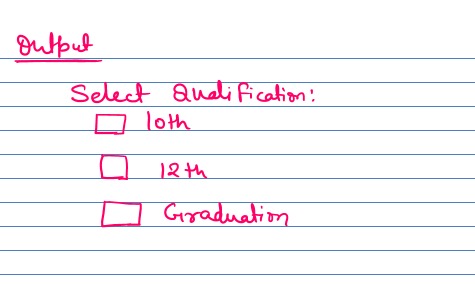 Output
Select Qualification:
10th
12th
Graduation